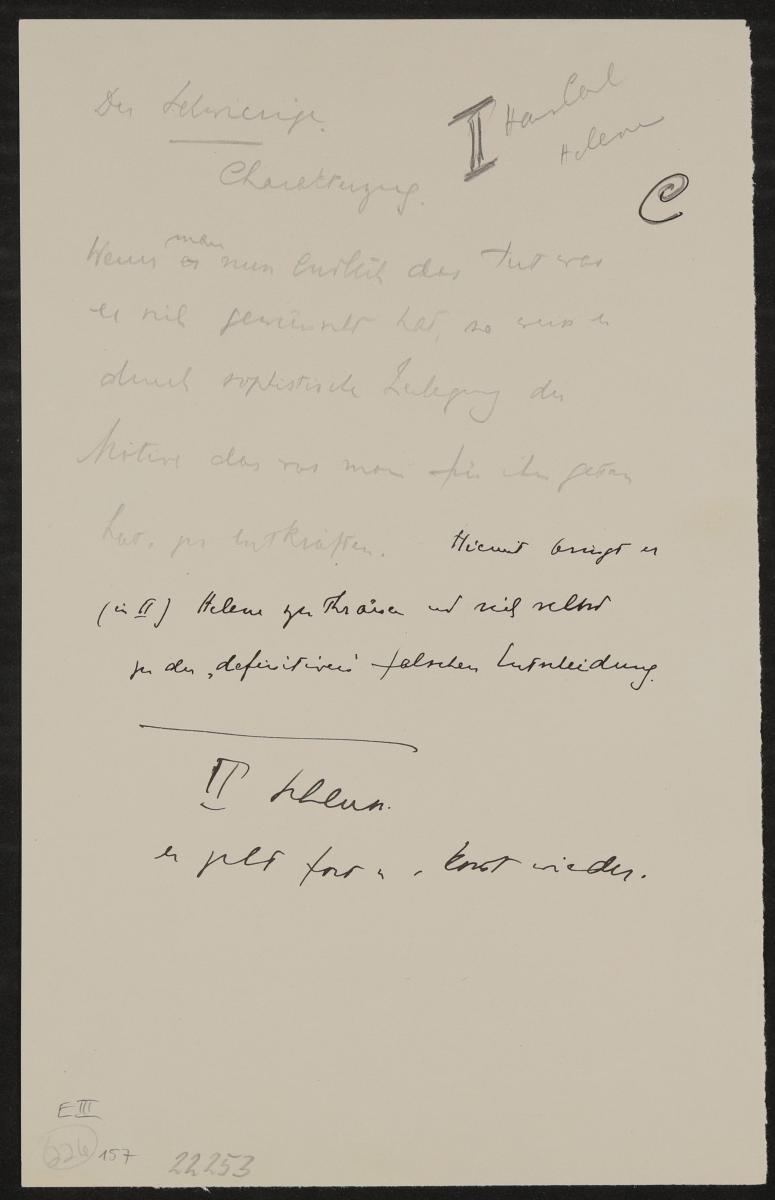 Der Schwierige.
II Hans Carl
Helene
C
Charakterzug.
man
Wenn es nun endlich das tut was
er sich gewünscht hat, so weiss er
durch sophistische Zerlegung der
Motive das was man für ihn getan
hat, zu entkräften. Hiemit bringt er
(in II) Helene zu Thränen und sich selbst
zu der „definitiven" falschen Entscheidung.
II Schluss.
er geht fort u. kommt wieder.
E III
226 157 22253